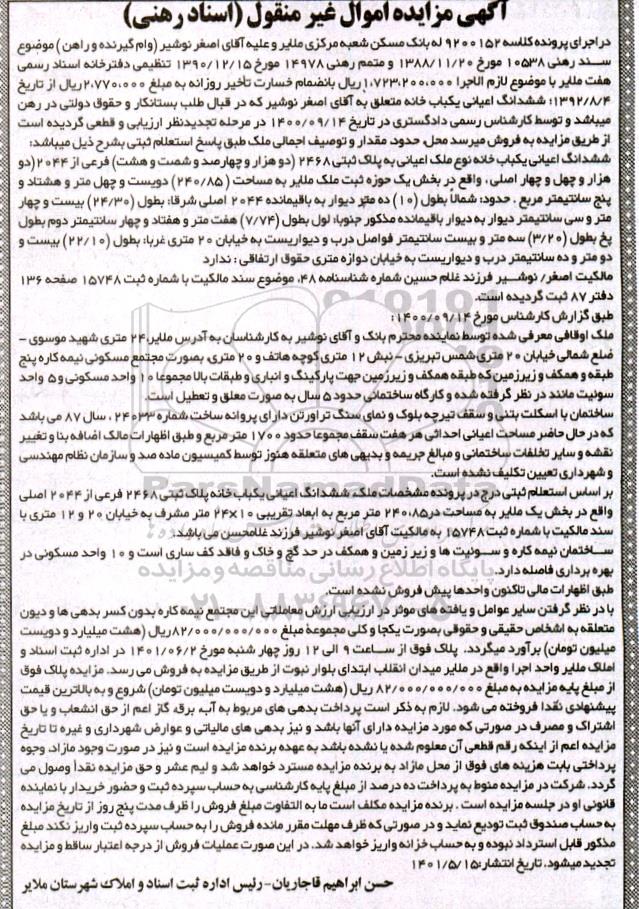 آگهی مزایده اموال غیر منقول (اسناد رهنی)
در اجرای پرونده کلاسه ۹۲۰۰۱۵۲ له بانک مسکن شعبه مرکزی ملایر و علیه آقای اصغر نوشیر (وام گیرنده و راهن) موضوع
سند رهنی ۱۰۵۳۸ مورخ ۱۳۸۸/۱۱/۲۰ و متمم رهنی ۱۴۹۷۸ مورخ ۱۳۹۰/۱۲/۱۵ تنظیمی دفترخانه اسناد رسمی
هفت ملایر با موضوع لازم الاجرا ۱,۷۲۳,۲۰۰,۰۰۰ ریال بانضمام خسارت تأخیر روزانه به مبلغ ۲,۷۷۰,۰۰۰ ریال از تاریخ
۱۳۹۲/۸/۴: ششدانگ اعیانی یکباب خانه متعلق به آقای اصغر نوشیر که در قبال طلب بستانکار و حقوق دولتی در رهن
میباشد و توسط کارشناس رسمی دادگستری در تاریخ ۱۴۰۰/۰۹/۱۴ در مرحله تجدیدنظر ارزیابی و قطعی گردیده است
از طریق مزایده به فروش میرسد محل، حدود، مقدار و توصیف اجمالی ملک طبق پاسخ استعلام ثبتی بشرح ذیل میباشد:
ششدانگ اعیانی یکباب خانه نوع ملک اعیانی به پلاک ثبتی ۲۴۶۸ (دو هزار و چهارصد و شصت و هشت) فرعی از ۲۰۴۴ (دو
هزار و چهل و چهار اصلی، واقع در بخش یک حوزه ثبت ملک ملایر به مساحت (۲۴۰/۸۵) دویست و چهل متر و هشتاد و
پنج سانتیمتر مربع. حدود: شمالاً بطول (۱۰) ده متر دیوار به باقیمانده ۲۰۴۴ اصلی شرقا: بطول (۲۴/۳۰) بیست و چهار
متر و سی سانتیمتر دیوار به دیوار باقیمانده مذکور جنوبا: اول بطول (۷/۷۴) هفت متر و هفتاد و چهار سانتیمتر دوم بطول
پخ بطول (۳/۲۰) سه متر و بیست سانتیمتر فواصل درب و دیواریست به خیابان ۲۰ متری غربا: بطول (۲۲/۱۰) بیست و
دو متر و ده سانتیمتر درب و دیواریست به خیابان دوازه متری حقوق ارتفاقی: ندارد
مالکیت اصغر/ نوشیر فرزند غلام حسین شماره شناسنامه ۴۸، موضوع سند مالکیت با شماره ثبت ۱۵۷۴۸ صفحه ۱۳۶
دفتر ۸۷ ثبت گردیده است.
طبق گزارش کارشناس مورخ ۱۴۰۰/۰۹/۱۴:
ملک اوقافی معرفی شده توسط نماینده محترم بانک و آقای نوشیر به کارشناسان به آدرس ملایر، ۲۴ متری شهید موسوی -
ضلع شمالی خیابان ۲۰ متری شمس تبریزی - نبش ۱۲ متری کوچه هاتف و ۲۰ متری، بصورت مجتمع مسکونی نیمه کاره پنج
طبقه و همکف و زیرزمین که طبقه همکف و زیرزمین جهت پارکینگ و انباری و طبقات بالا مجموعا ۱۰ واحد مسکونی و ۵ واحد
سوئیت مانند در نظر گرفته شده و کارگاه ساختمانی حدود ۵ سال به صورت معلق و تعطیل است.
ساختمان با اسکلت بتنی و سقف تیرچه بلوک و نمای سنگ تراورتن دارای پروانه ساخت شماره ۲۴۰۳۳، سال ۸۷ می باشد
که در حال حاضر مساحت اعیانی احداثی هر هفت سقف مجموعا حدود ۱۷۰۰ متر مربع و طبق اظهارات مالک اضافه بنا و تغییر
نقشه و سایر تخلفات ساختمانی و مبالغ جریمه و بدهی های متعلقه هنوز توسط کمیسیون ماده صد و سازمان نظام مهندسی
و شهرداری تعیین تکلیف نشده است.
بر اساس استعلام ثبتی درج در پرونده مشخصات ملک، ششدانگ اعیانی یکباب خانه پلاک ثبتی ۲۴۶۸ فرعی از ۲۰۴۴ اصلی
واقع در بخش یک ملایر به مساحت در ۲۴۰٫۸۵ متر مربع به ابعاد تقریبی ۱۰×۲۴ متر مشرف به خیابان ۲۰ و ۱۲ متری با
سند مالکیت با شماره ثبت ۱۵۷۴۸ به مالکیت آقای اصغر نوشیر فرزند غلامحسن می باشد.
ساختمان نیمه کاره و سوئیت ها و زیر زمین و همکف در حد گچ و خاک و فاقد کف سازی است و ۱۰ واحد مسکونی در
بهره برداری فاصله دارد.
طبق اظهارات مالی تاکنون واحدها پیش فروش نشده است.
با در نظر گرفتن سایر عوامل و یافته های موثر در ارزیابی ارزش معاملاتی این مجتمع نیمه کاره بدون کسر بدهی ها و دیون
متعلقه به اشخاص حقیقی و حقوقی بصورت یکجا و کلی مجموعهً مبلغ ۸۲/۰۰۰/۰۰۰/۰۰۰ ریال (هشت میلیارد و دویست
میلیون تومان) برآورد میگردد. پلاک فوق از ساعت ۹ الی ۱۲ روز چهار شنبه مورخ ۱۴۰۱/۰۶/۲ در اداره ثبت اسناد و
املاک ملایر واحد اجرا واقع در ملایر میدان انقلاب ابتدای بلوار نبوت از طریق مزایده به فروش می رسد. مزایده پلاک فوق
از مبلغ پایه مزایده به مبلغ ۸۲/۰۰۰/۰۰۰/۰۰۰ ریال (هشت میلیارد و دویست میلیون تومان) شروع و به بالاترین قیمت
پیشنهادی نقدا فروخته می شود. لازم به ذکر است پرداخت بدهی های مربوط به آب، برق، گاز اعم از حق انشعاب و یا حق
اشتراک و مصرف در صورتی که مورد مزایده دارای آنها باشد و نیز بدهی های مالیاتی و عوارض شهرداری و غیره تا تاریخ
مزایده اعم از اینکه رقم قطعی آن معلوم شده یا نشده باشد به عهده برنده مزایده است و نیز در صورت وجود مازاد، وجوه
پرداختی بابت هزینه های فوق از محل مازاد به برنده مزایده مسترد خواهد شد و لیم عشر و حق مزایده نقداً وصول می
گردد. شرکت در مزایده منوط به پرداخت ده درصد از مبلغ پایه کارشناسی به حساب سپرده ثبت و حضور خریدار با نماینده
قانونی او در جلسه مزایده است. برنده مزایده مکلف است ما به التفاوت مبلغ فروش را ظرف مدت پنج روز از تاریخ مزایده
به حساب صندوق ثبت تودیع نماید و در صورتی که ظرف مهلت مقرر مانده فروش را به حساب سپرده ثبت واریز نکند مبلغ
مذکور قابل استرداد نبوده و به حساب خزانه واریز خواهد شد. در این صورت عملیات فروش از درجه اعتبار ساقط و مزایده
تجدید میشود. تاریخ انتشار: ۱۴۰۱/۵/۱۵
حسن ابراهیم قاجاریان - رئیس اداره ثبت اسناد و املاک شهرستان ملایر
ParsNamadData
پایگاه اطلاع رسانی مناقصه و مزایده